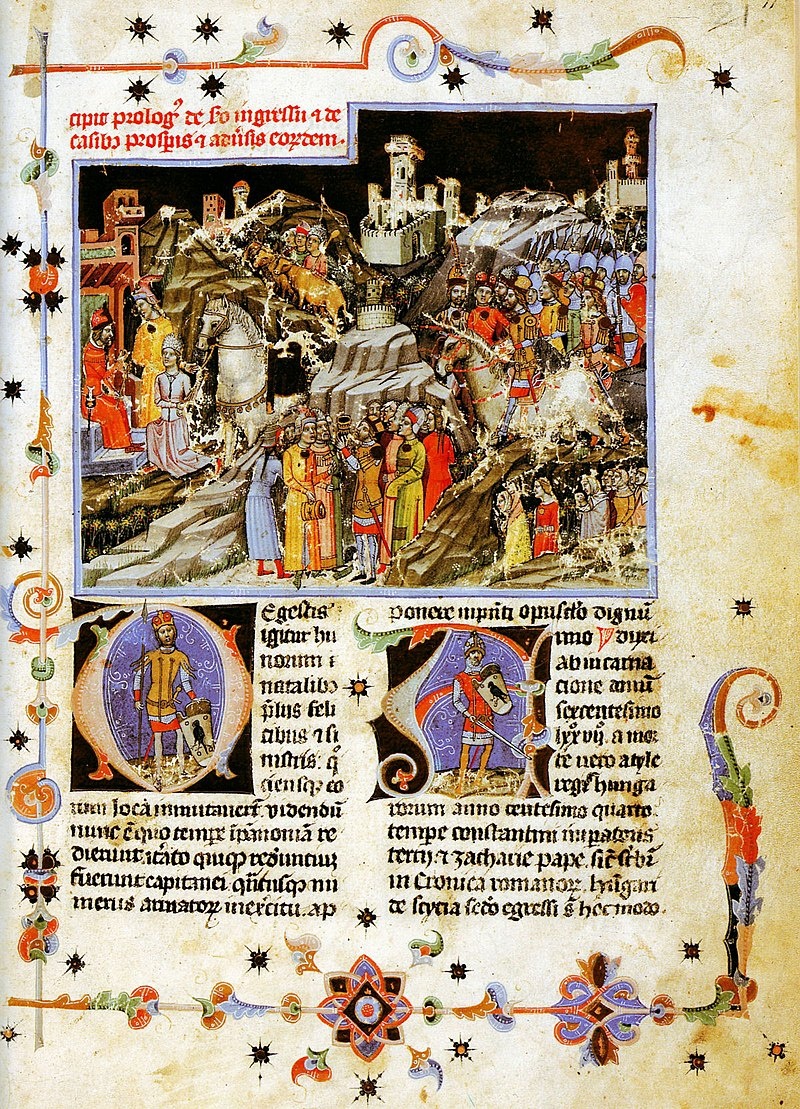 cipit prologꝰ de ßo ingressu ⁊ de
casibꝫ prospis ⁊ aduˀsis eorꝫdem.
Egestis
igitur hu
norum i
natalibꝫ
plius feli
cibus ⁊ si
nistris. qͦ
ciensqꝫ eo
rum locā inmutauerīt. videndū
nunc ē quo tempe ī panoniā re
dierunt. itato quiqꝫ redeuntiuꝫ
fuerunt capitanei. qītusqꝫ nu
merus armatoꝝ in exercitu. ap
ponere in pnti opusclo dignū
imo duxi
Ab incarna
cione dnī
sexcentesimo
lxx vij. a mor
te uero atyle
regis hunga
rorum anno centesimo quarto.
tempe constantini inpatoris
tercij ⁊ zacharie pape. sic scbr
in Cronica romanoꝝ. hungari
de scycia secdo egressi st hoc modo.